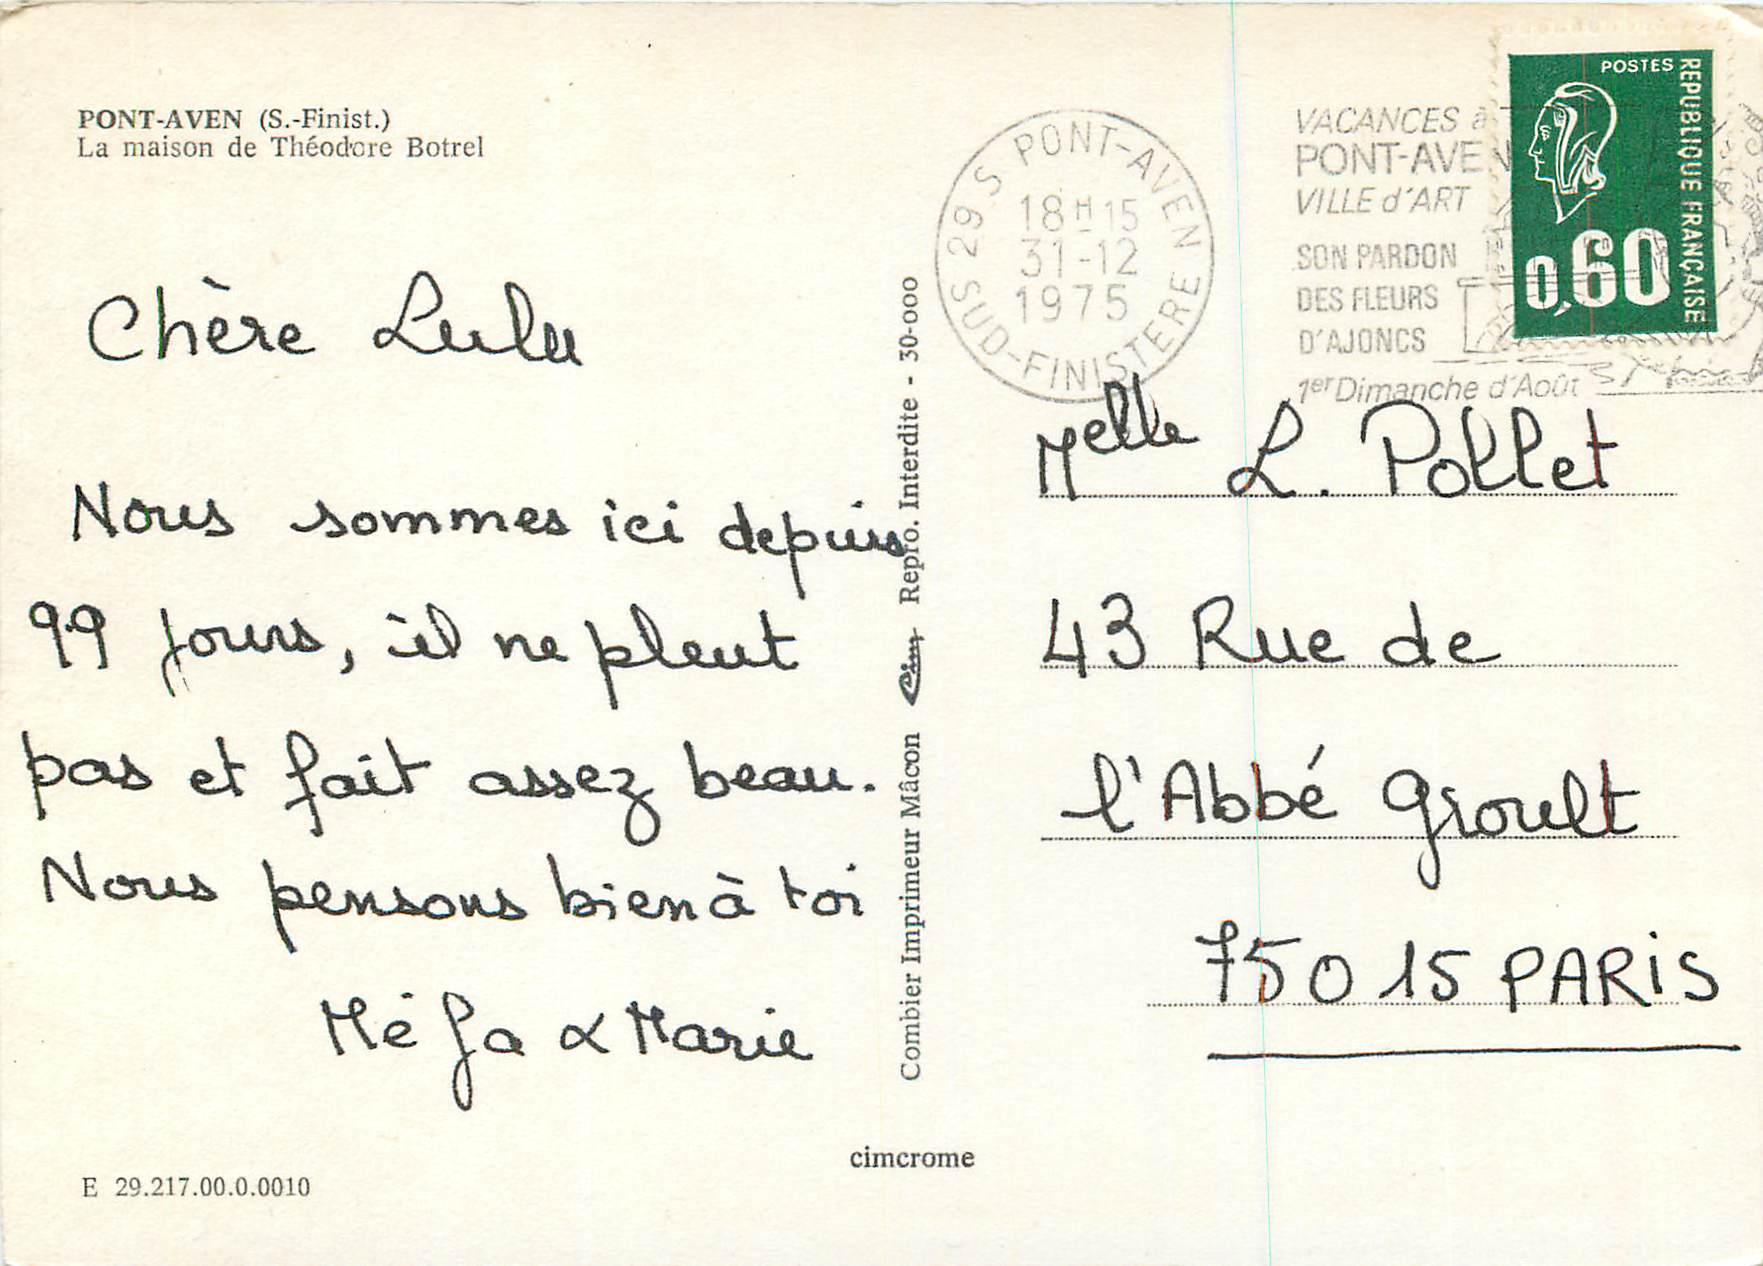 PONT-AVEN (S.-Finist.)
La maison de Théodore Botrel
Chère Lulu
Nous sommes ici depuis
99 jours, il ne pleut
pas et fait assez beau.
Nous pensons bien à toi
Mé Ja & Marie
E 29.217.00.0.0010
Combier Imprimeur Mâcon Cim Repro. Interdite - 30-000
cimcrome
29 S PONT-AVEN
18H15
31-12
1975
SUD-FINISTERE
VACANCES à
PONT-AVEN
VILLE d'ART
SON PARDON
DES FLEURS
D'AJONCS
1er Dimanche d'Août
POSTES
REPUBLIQUE FRANÇAISE
0,60
Melle L. Pollet
43 Rue de
l'Abbé Groult
75015 PARiS